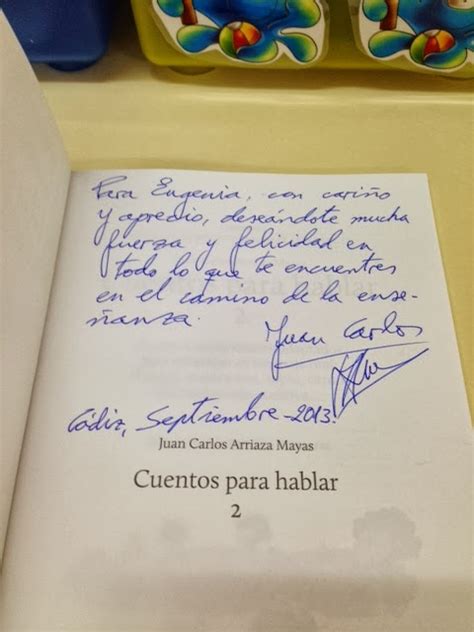 Para Eugenia, con cariño
y aprecio, deseándote mucha
fuerza y felicidad en
todo lo que te encuentres
en el camino de la ense-
ñanza.
Juan Carlos
Cádiz, Septiembre-2013.
Juan Carlos Arriaza Mayas
Cuentos para hablar
2